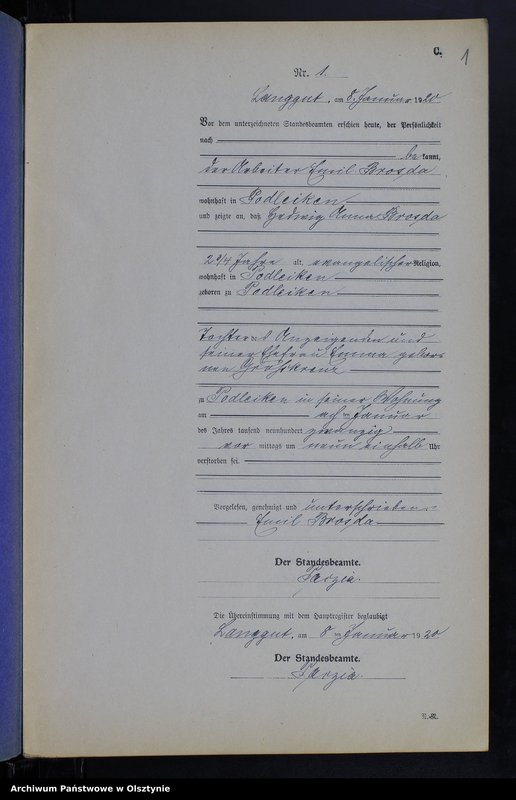 C.
1
Nr. 1.
Langgut, am 8. Januar 1920
Vor dem unterzeichneten Standesbeamten erschien heute, der Persönlichkeit
nach
be kannt,
der Arbeiter Emil Brosda
wohnhaft in Podleiken
und zeigte an, daß Hedwig Anna Brosda
2 3/4 Jahre alt, evangelischer Religion,
wohnhaft in Podleiken
geboren zu Podleiken
Tochter des Anzeigenden und
seiner Ehefrau Emma gebore
nen
zu Podleiken in seiner Wohnung
am acht Januar
des Jahres tausend neunhundert zwanzig
vor mittags um neun einhalb Uhr
verstorben sei.
Vorgelesen, genehmigt und unterschrieben
Emil Brosda
Der Standesbeamte.
Die Übereinstimmung mit dem Hauptregister beglaubigt
Langgut, am 8 Januar 1920
Der Standesbeamte.
Archiwum Państwowe w Olsztynie